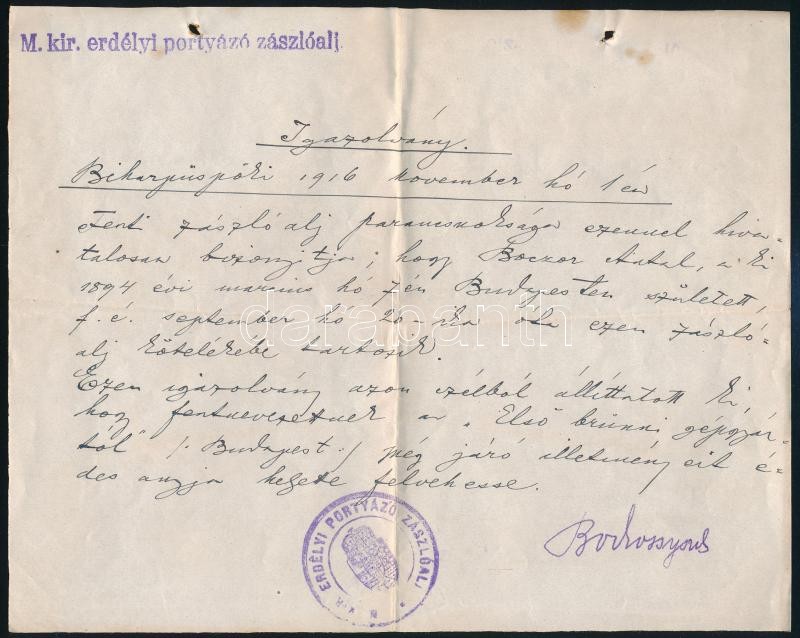 M. kir. erdélyi portyázó zászlóalj.
Igazolvány.
Biharpüspöki 1916 november hó 1 én
Fent zászlóalj parancsnoksága ezennel hiva-
talosan bizonyitja, hogy Boczor Antal, a ki
1894 évi marcius hó 7én Budapesten született,
f. é. september hó 20.-ika óta ezen zászló-
alj kötelékébe tartozik.
Ezen igazolvány azon czélból állíttatott ki,
hogy fentnevezettnek az „Első brünni gépgyár-
tól" /: Budapest :/ még járó illetményeit é-
des anyja helyette felvehesse.
M. KIR. ERDÉLYI PORTYÁZÓ ZÁSZLÓALJ
darabanth